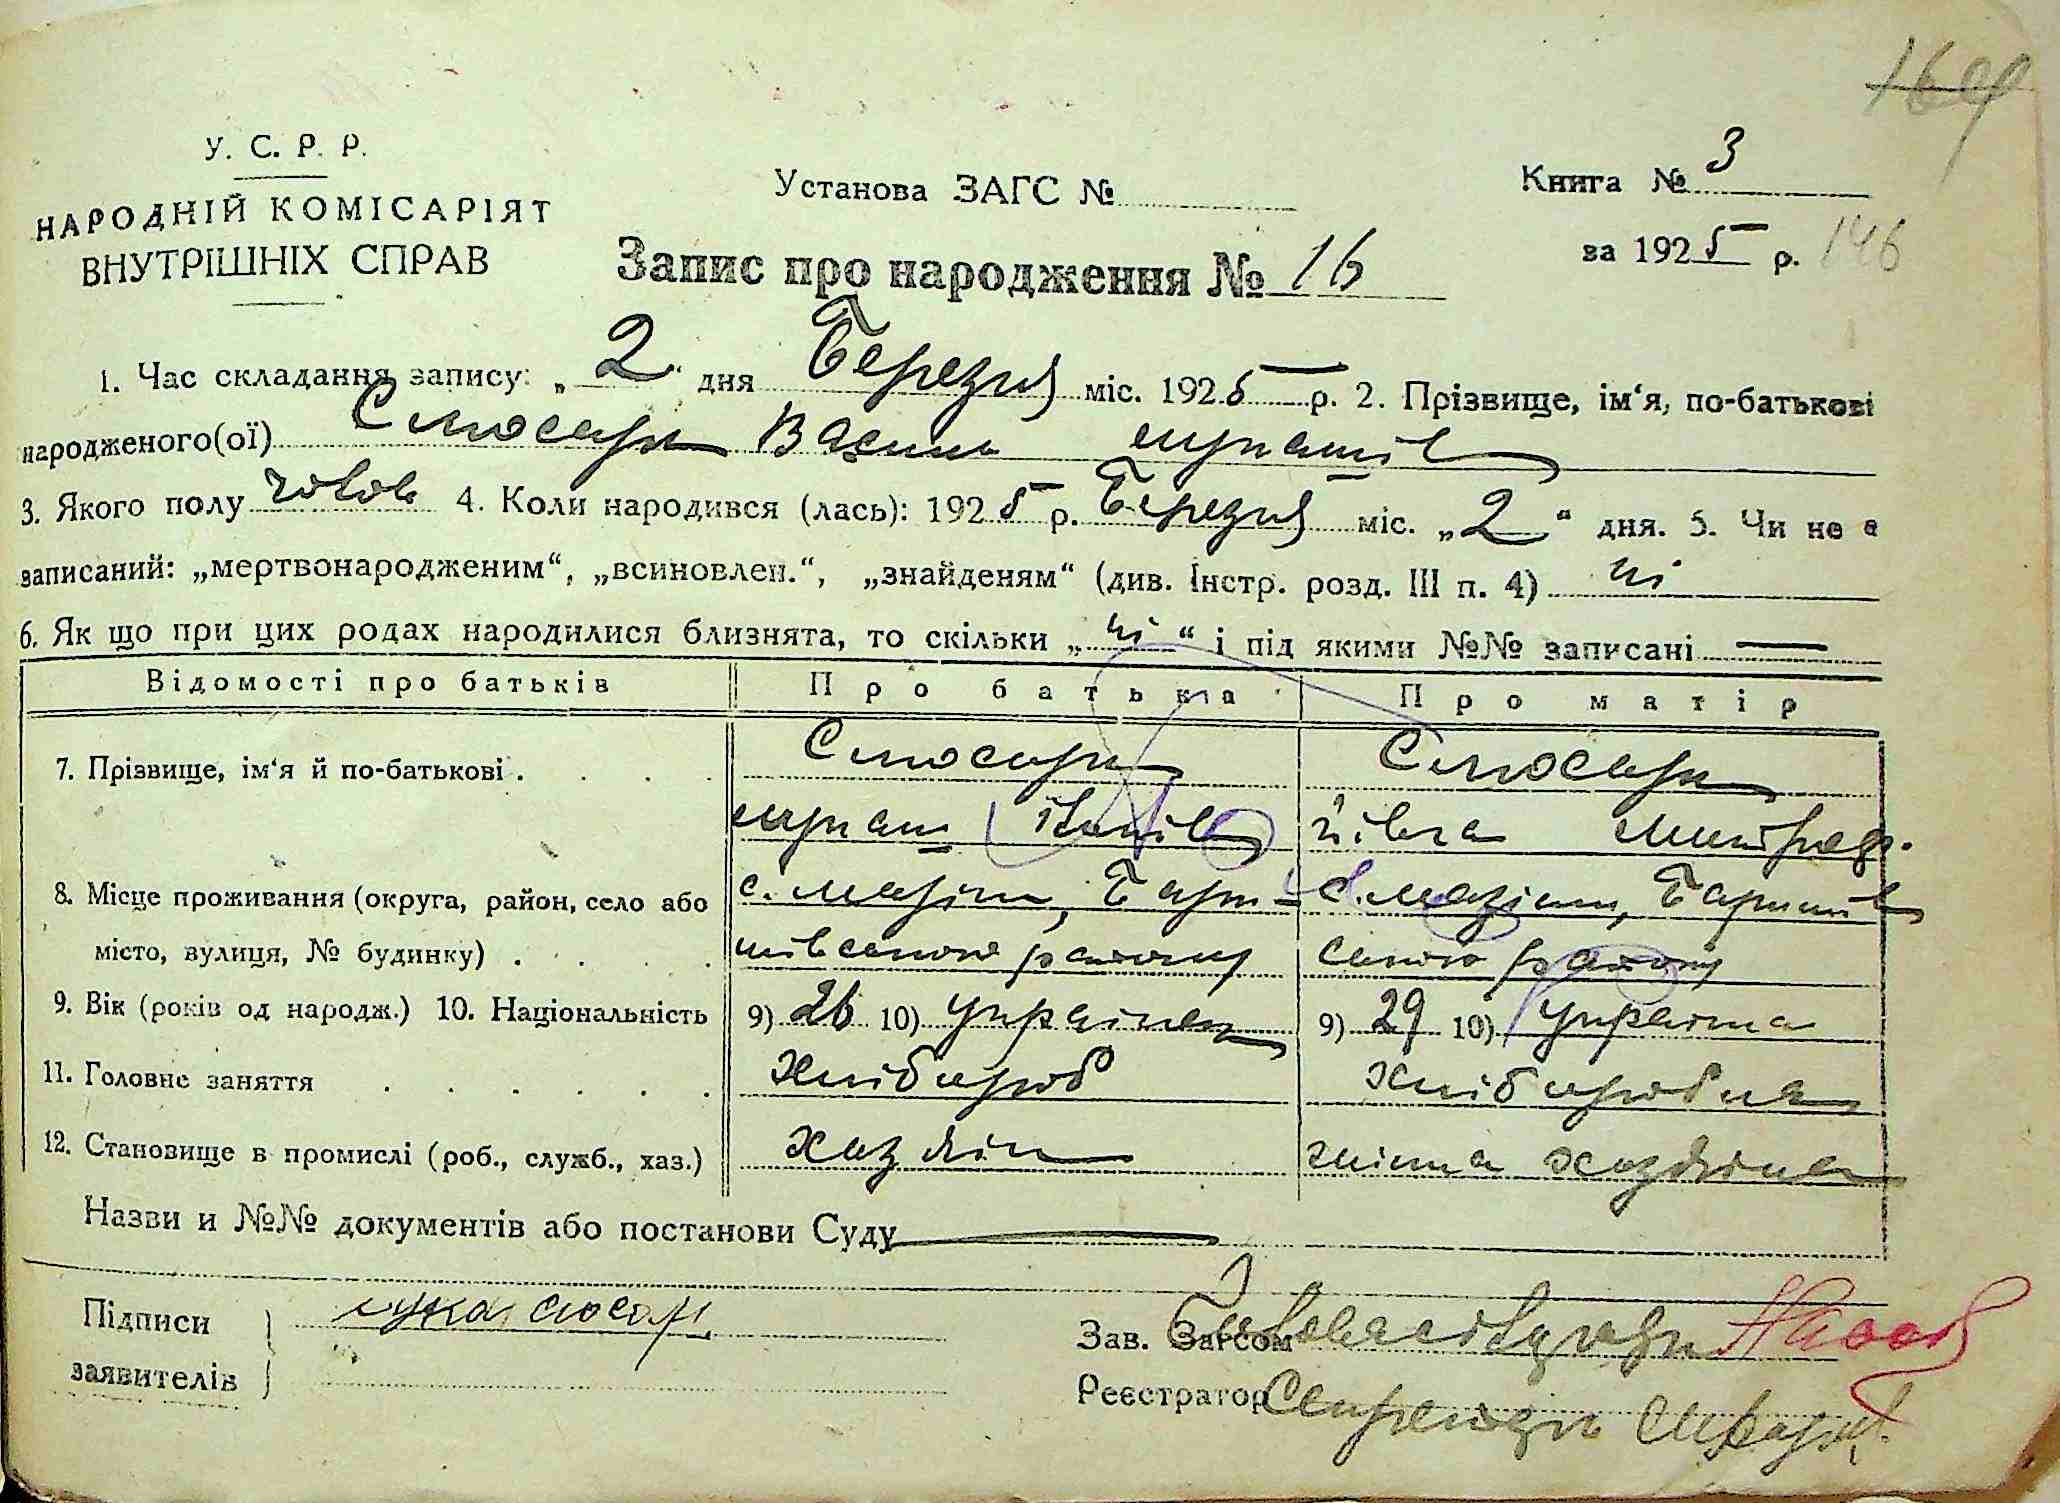 164
У. С. Р. Р.
НАРОДНІЙ КОМІСАРІЯТ
ВНУТРІШНІХ СПРАВ
Установа ЗАГС №
Книга № 3
за 1925 р. 146
Запис про народження № 16
1. Час складання запису: „2“ дня Березня міс. 1925 р. 2. Прізвище, ім‘я, по-батькові
народженого(ої) Слюсарь Василь Лукашів
3. Якого полу чолов 4. Коли народився (лась): 1925 р. Березня міс. „2“ дня. 5. Чи не є
записаний: „мертвонародженим“, „всиновлен.“, „знайденям“ (див. Інстр. розд. III п. 4) ні
6. Як що при цих родах народилися близнята, то скільки „ні“ і під якими №№ записані —
Відомості про батьків Про батька Про матір
7. Прізвище, ім‘я й по-батькові . . . . Слюсарь Слюсарь
Лукаш Іванів Півга
8. Місце проживання (округа, район, село або с. Мазінки, Бари- с. Мазінки, Баришів
місто, вулиця, № будинку) . . . . шівського району ського району
9. Вік (років од народж.) 10. Національність 9) 26 10) Українець 9) 29 10) Українка
11. Головне заняття . . . . . . Хлібороб Хлібороб
12. Становище в промислі (роб., служб., хаз.) хазяїн жінка хазяїна
Назви и №№ документів або постанови Суду —
Підписи заявителів
Зав. Загсом
Реєстратор Секретарь